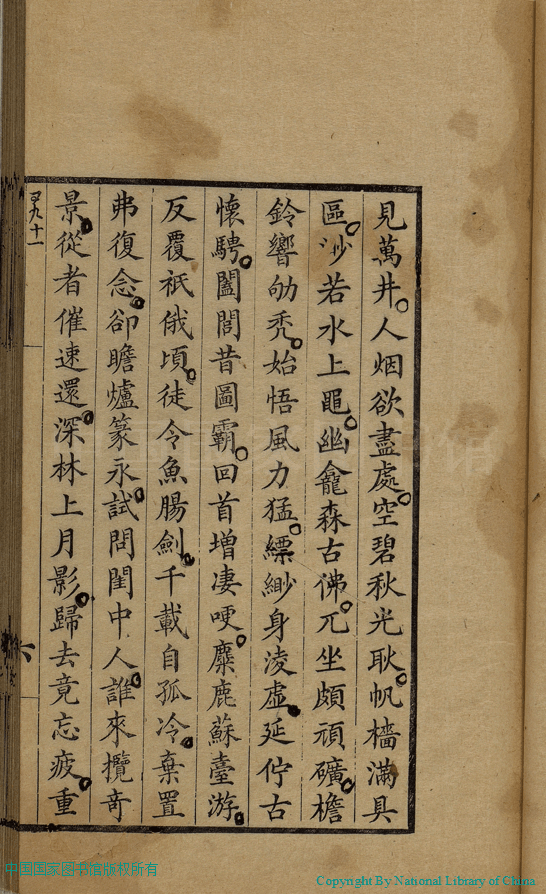 見萬井人烟欲盡處空碧秋光耿帆檣滿具
區渺若水上黽幽龕森古佛兀坐頗頑礦檐
鈴響劬禿始悟風力猛縹緲身淩虛延佇古
懷騁闔閭昔圖霸回首增凄哽麋鹿蘇臺游
反覆祇俄頃徒令魚腸劍千載自孤冷棄置
弗復念卻瞻爐篆永試問閨中人誰來攬奇
景從者催速還深林上月影歸去竟忘疲重
中国国家图书馆版权所有
Copyright By National Library of China